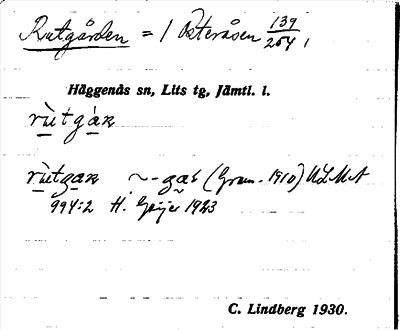 Rutgården = 1 Österåsen 139/254,
Häggenås sn, Lits tg, Jämtl. l.
rùtgàṛ
rùtgaṛ ~-gas (Gram. 1910) ULMA
994:2 H. Geijer 1923
C. Lindberg 1930.